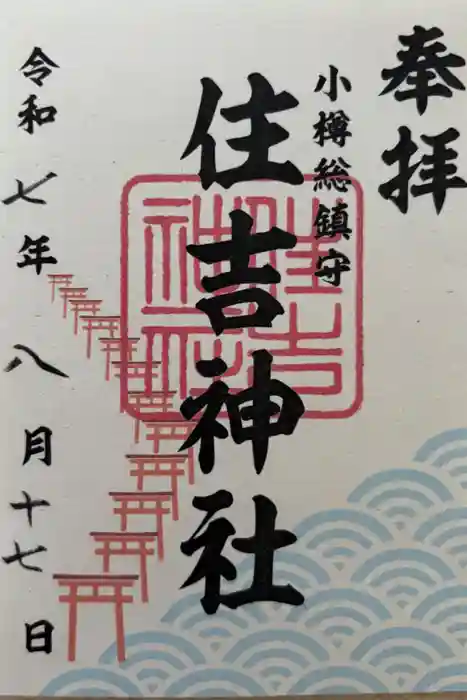 奉拝
小樽総鎮守
住吉神社
住吉神社
令和七年八月十七日